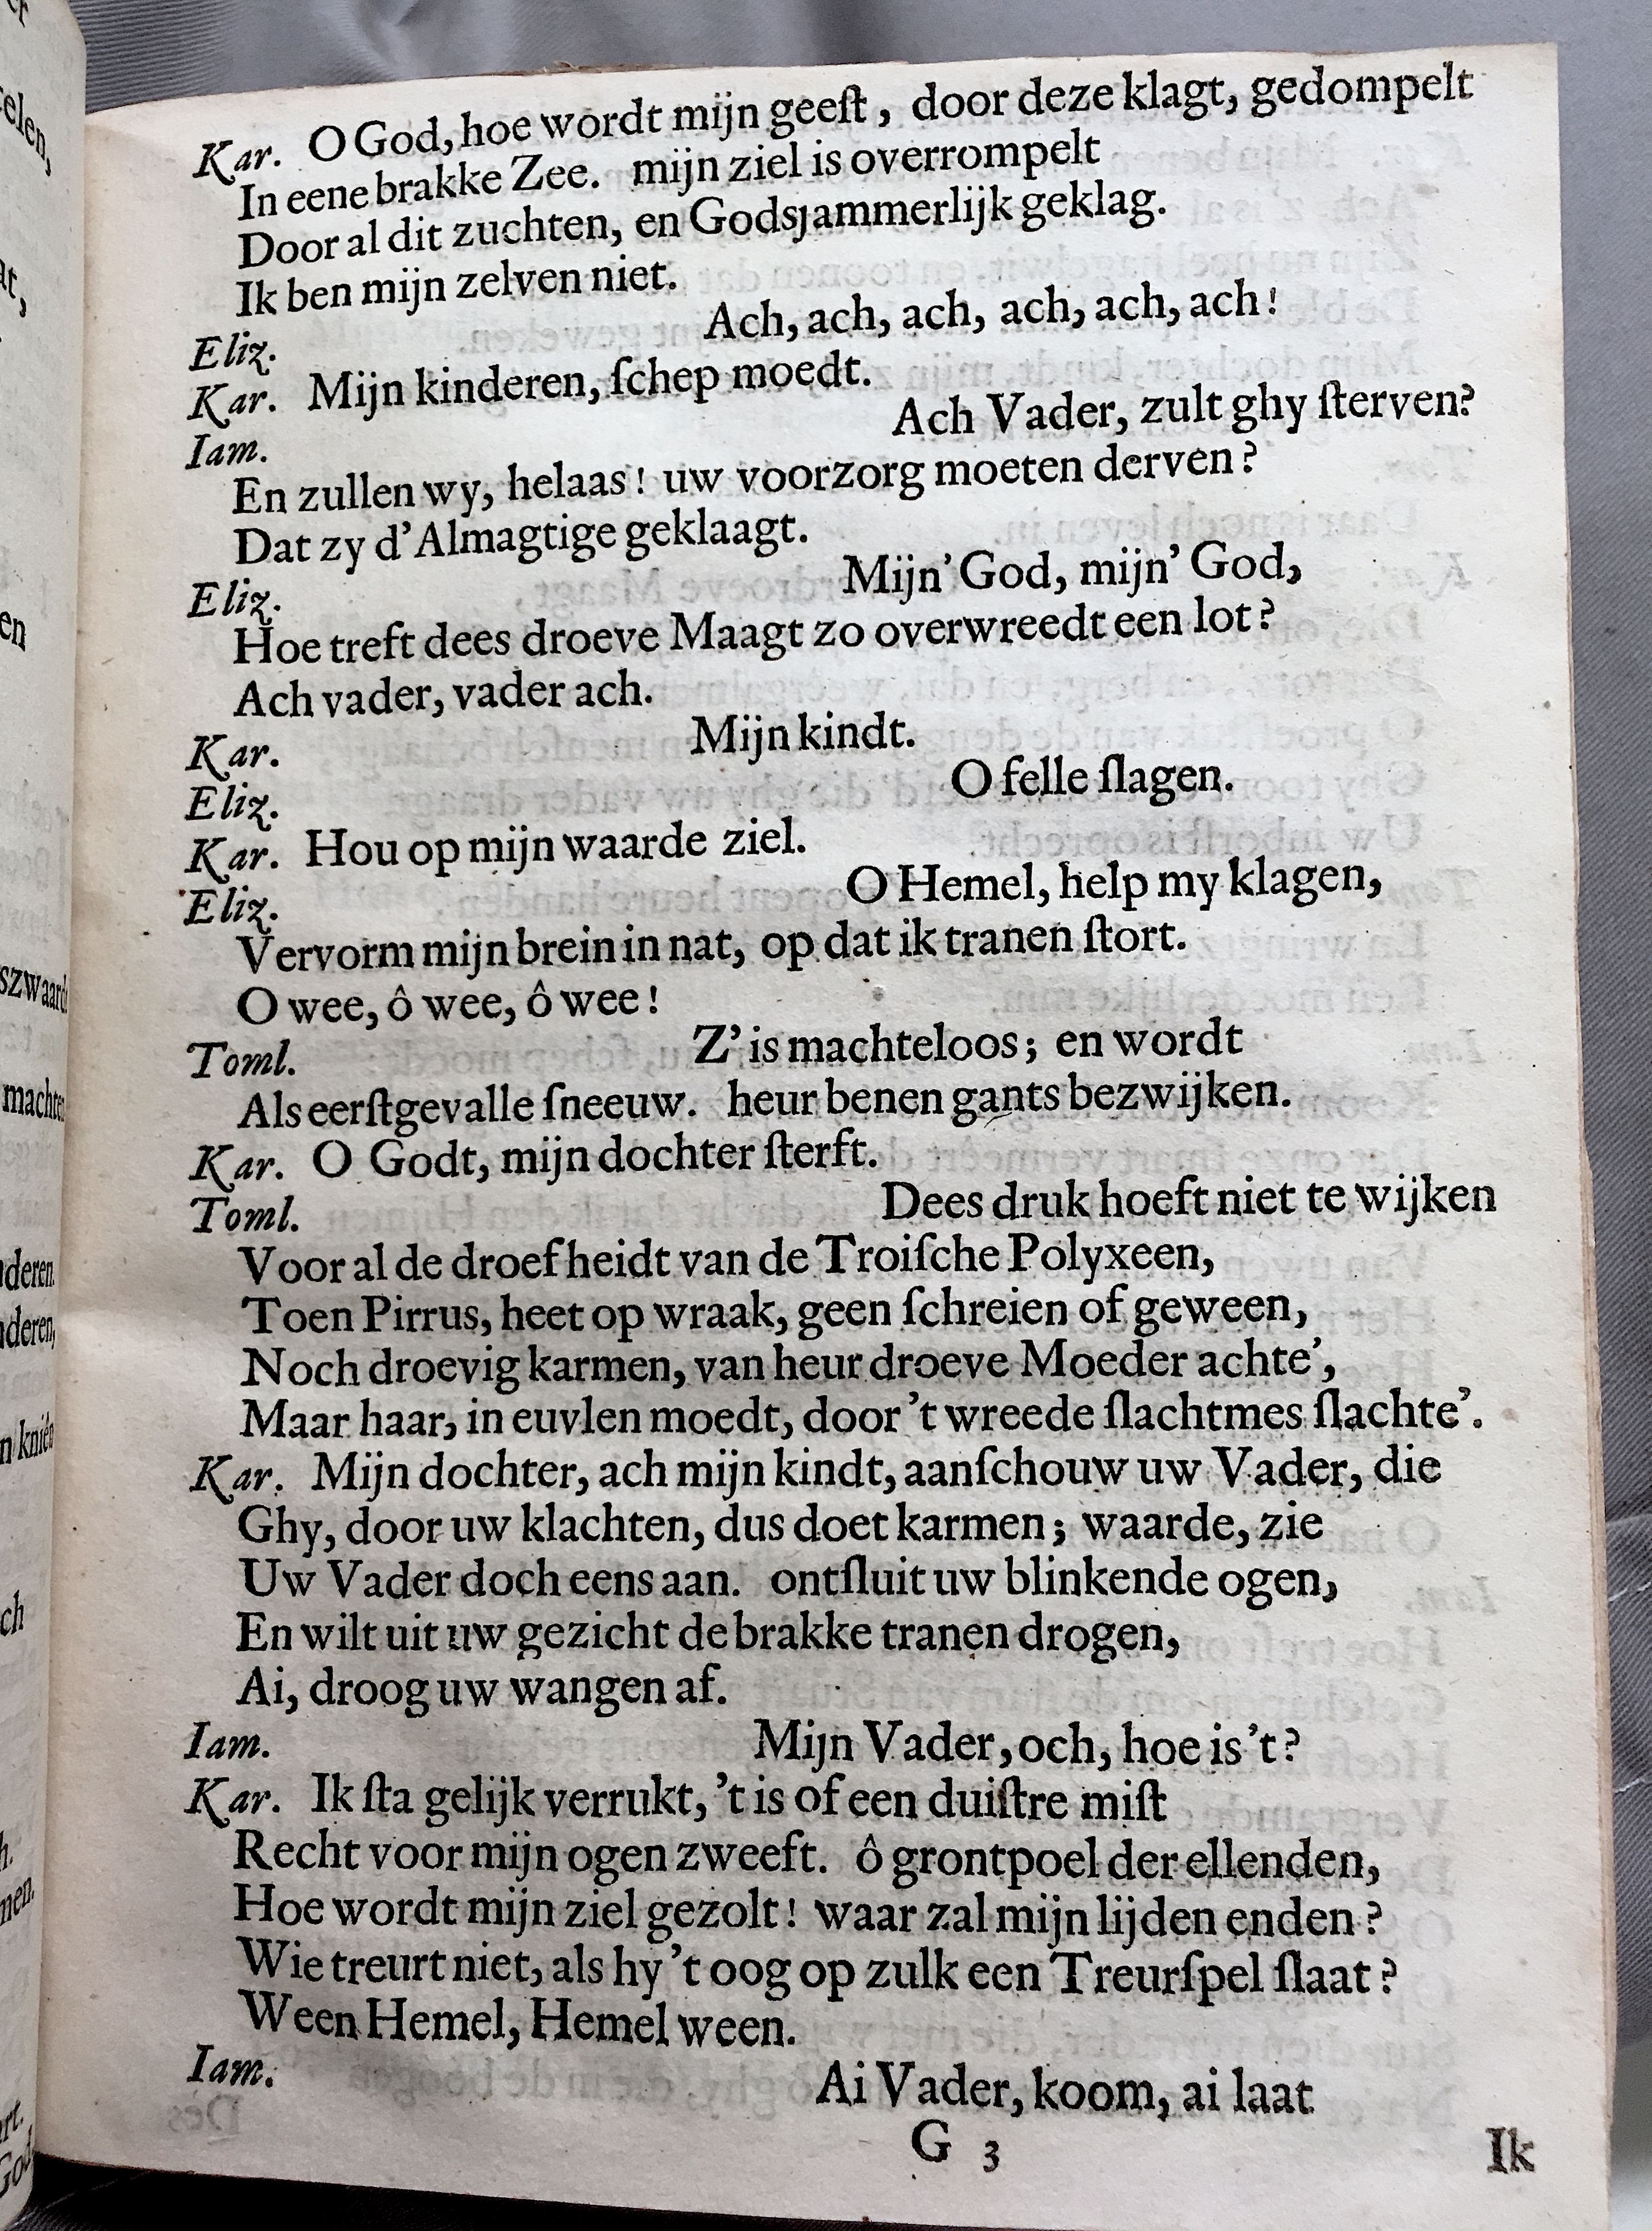 Kar. O God, hoe wordt mijn geeſt, door deze klagt, gedompelt
In eene brakke Zee. mijn ziel is overrompelt
Door al dit zuchten, en Godsjammerlijk geklag.
Ik ben mijn zelven niet.
Eliz. Ach, ach, ach, ach, ach, ach!
Kar. Mijn kinderen, ſchep moedt.
Iam. Ach Vader, zult ghy ſterven?
En zullen wy, helaas! uw voorzorg moeten derven?
Dat zy d'Almagtige geklaagt.
Eliz. Mijn' God, mijn' God,
Hoe treft dees droeve Maagt zo overwreedt een lot?
Ach vader, vader ach.
Kar. Mijn kindt.
Eliz. O felle ſlagen.
Kar. Hou op mijn waarde ziel.
Eliz. O Hemel, help my klagen,
Vervorm mijn brein in nat, op dat ik tranen ſtort.
O wee, ô wee, ô wee!
Toml. Z' is machteloos; en wordt
Als eerſtgevalle ſneeuw. heur benen gants bezwijken.
Kar. O Godt, mijn dochter ſterft.
Toml. Dees druk hoeft niet te wijken
Voor al de droefheidt van de Troiſche Polyxeen,
Toen Pirrus, heet op wraak, geen ſchreien of geween,
Noch droevig karmen, van heur droeve Moeder achte',
Maar haar, in euvlen moedt, door 't wreede ſlachtmes ſlachte'.
Kar. Mijn dochter, ach mijn kindt, aanſchouw uw Vader, die
Ghy, door uw klachten, dus doet karmen; waarde, zie
Uw Vader doch eens aan. ontſluit uw blinkende ogen,
En wilt uit uw gezicht de brakke tranen drogen,
Ai, droog uw wangen af.
Iam. Mijn Vader, och, hoe is 't?
Kar. Ik ſta gelijk verrukt, 't is of een duiſtre miſt
Recht voor mijn ogen zweeft. ô grontpoel der ellenden,
Hoe wordt mijn ziel gezolt! waar zal mijn lijden enden?
Wie treurt niet, als hy 't oog op zulk een Treurſpel ſlaat?
Ween Hemel, Hemel ween.
Iam. Ai Vader, koom, ai laat
G 3 Ik